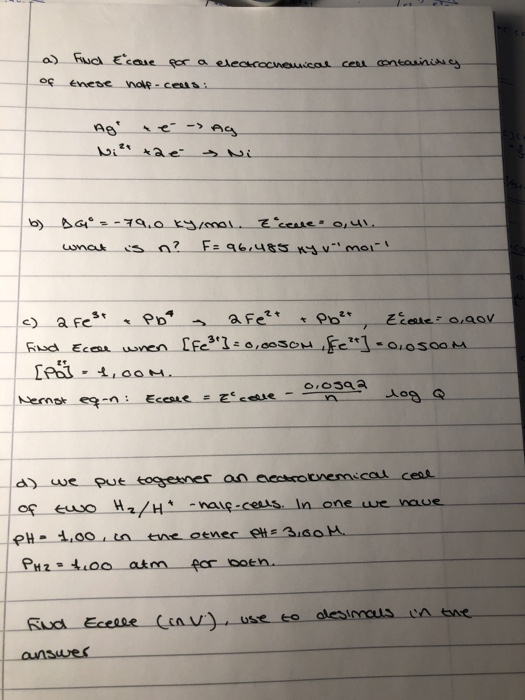 a) Find E°celle for a electrochemical cell containing
of these half-cells:
Ag⁺ + e⁻ -> Ag
Ni²⁺ + 2e⁻ -> Ni
b) ΔG° = -79,0 kJ/mol. E°celle = 0,41.
What is n? F = 96,485 kJ V⁻¹ mol⁻¹
c) 2Fe³⁺ + Pb -> 2Fe²⁺ + Pb²⁺, E°celle = 0,90V
Find Ecelle when [Fe³⁺] = 0,0050M, [Fe²⁺] = 0,0500M
[Pb²⁺] = 1,00M.
Nernst eq-n: Ecelle = E°celle - 0,0592/n log Q
d) we put together an electrochemical cell
of two H₂/H⁺ -half-cells. In one we have
pH = 1,00, in the other pH = 3,60 M.
PH2 = 1,00 atm for both.
Find Ecelle (in V), use to desimals in the
answer